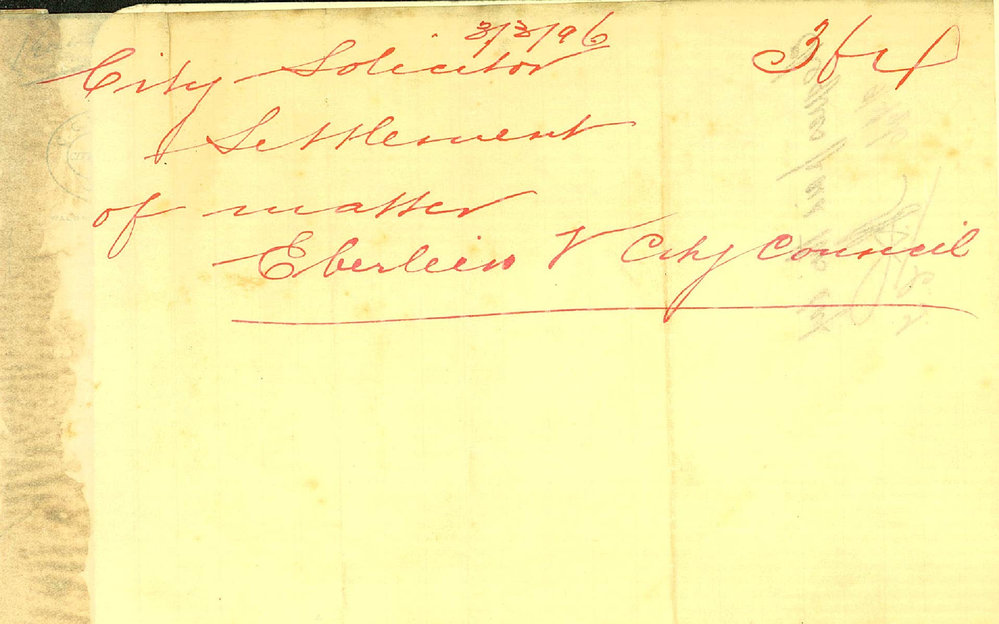 3/3/96
City Solicitor
Settlement
of matter
Eberlein V City Council